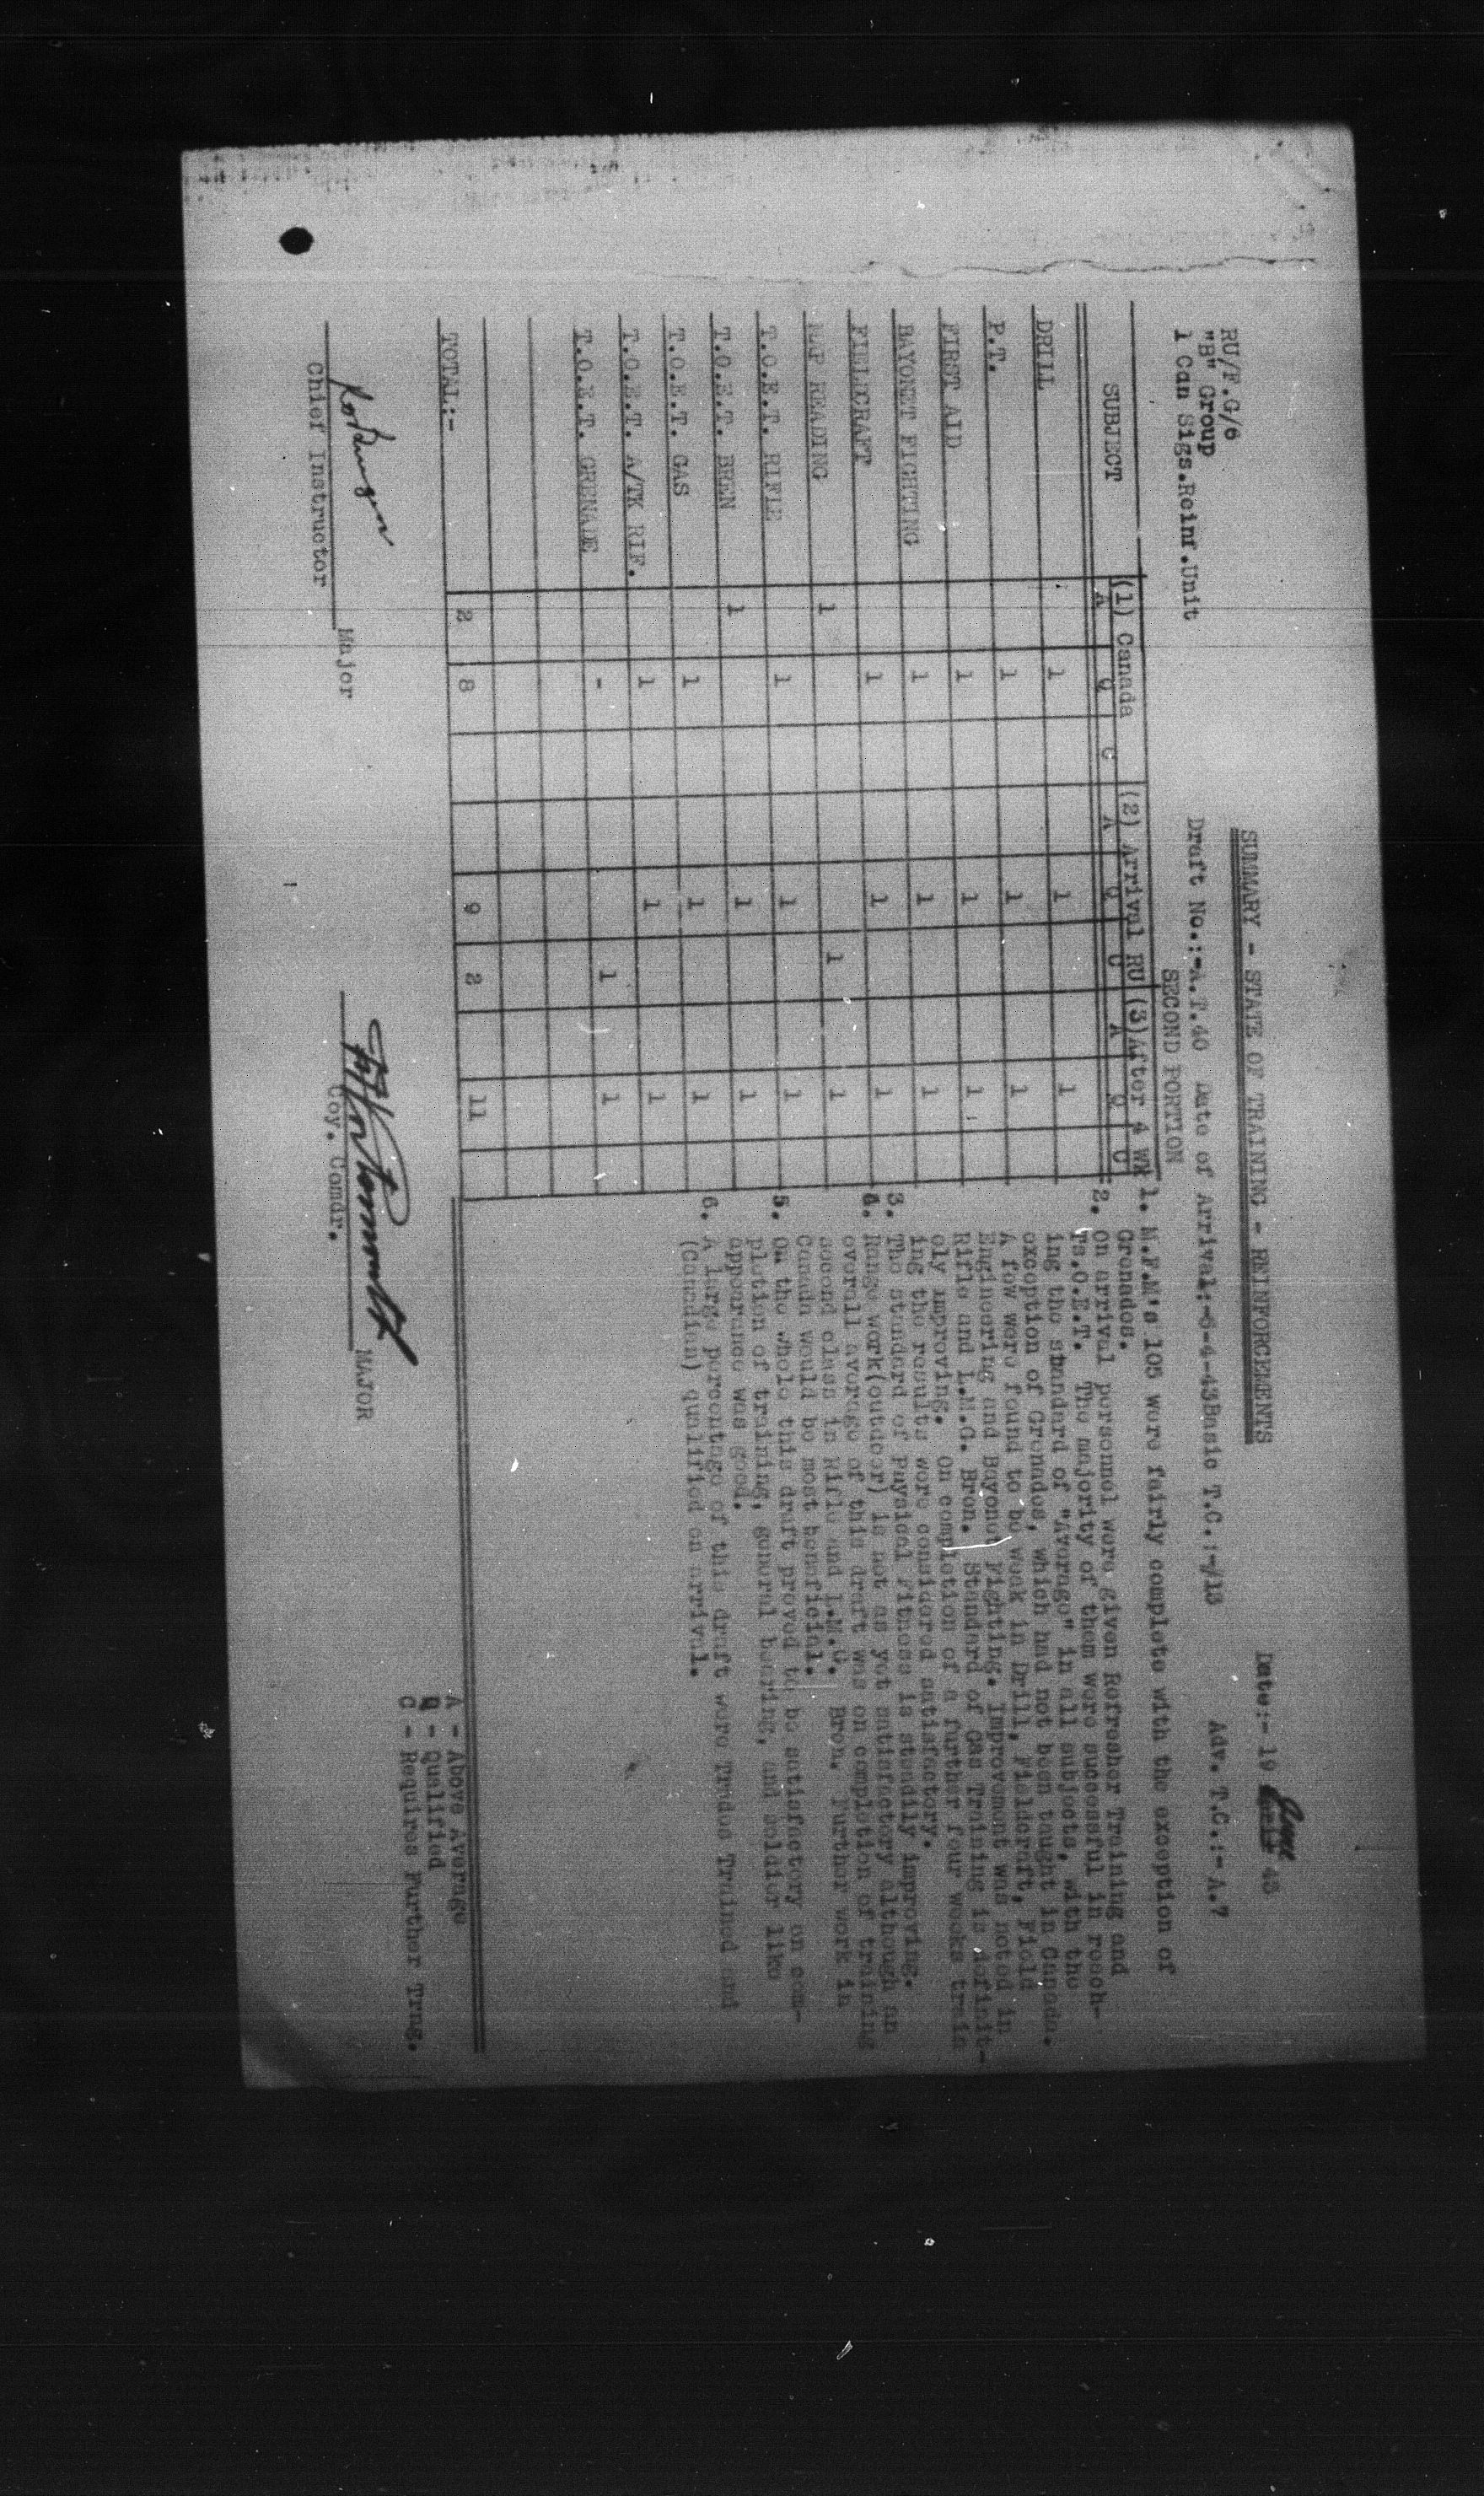 RU/F.G/6
"B" Group
1 Can Sigs.Reinf.Unit
SUMMARY - STATE OF TRAINING - REINFORCEMENTS
Date:- 19 June 43
Draft No.:-A.T.40 Date of Arrival:-6-4-43 Basic T.C.:-/13 Adv. T.C.:- A.7
SECOND PORTION
SUBJECT (1) Canada (2) Arrival RU (3)After 4 Wk
A Q C A Q C A Q C
DRILL 1 1 1
P.T. 1 1 1
FIRST AID 1 1 1
BAYONET FIGHTING 1 1 1
FIELDCRAFT 1 1 1
MAP READING 1 1 1
T.O.E.T. RIFLE 1 1 1
T.O.E.T. BREN 1 1 1
T.O.E.T. GAS 1 1 1
T.O.E.T. A/TK RIF. 1 1 1
T.O.E.T. GRENADE - 1 1
TOTAL:- 2 8 9 2 11
1. M.F.M's 105 were fairly complete with the exception of
Grenades.
2. On arrival personnel were given Refresher Training and
Ts.O.E.T. The majority of them were sucessful in reach-
ing the standard of "Average" in all subjects, with the
exception of Grenades, which had not been taught in Canada.
A few were found to be weak in Drill, Fieldcraft, Field
Engineering and Bayonet Fighting. Improvement was noted in
Rifle and L.M.G. Bren. Standard of Gas Training is definit-
ely improving. On completion of a further four weeks train
ing the results were considered satisfactory.
3. The standard of Physical Fitness is steadily improving.
4. Range work(outdoor) is not as yet satisfactory although an
overall average of this draft was on completion of training
second class in Rifle and L.M.G. Bren. Further work in
Canada would be most beneficial.
5. On the whole this draft proved to be satisfactory on com-
pletion of training, general bearing, and soldier like
appearance was good.
6. A large percentage of this draft were Trades Trained and
(Canadian) qualified on arrival.
A - Above Average
Q - Qualified
C - Requires Further Trng.
Major
Chief Instructor
MAJOR
Coy. Comdr.